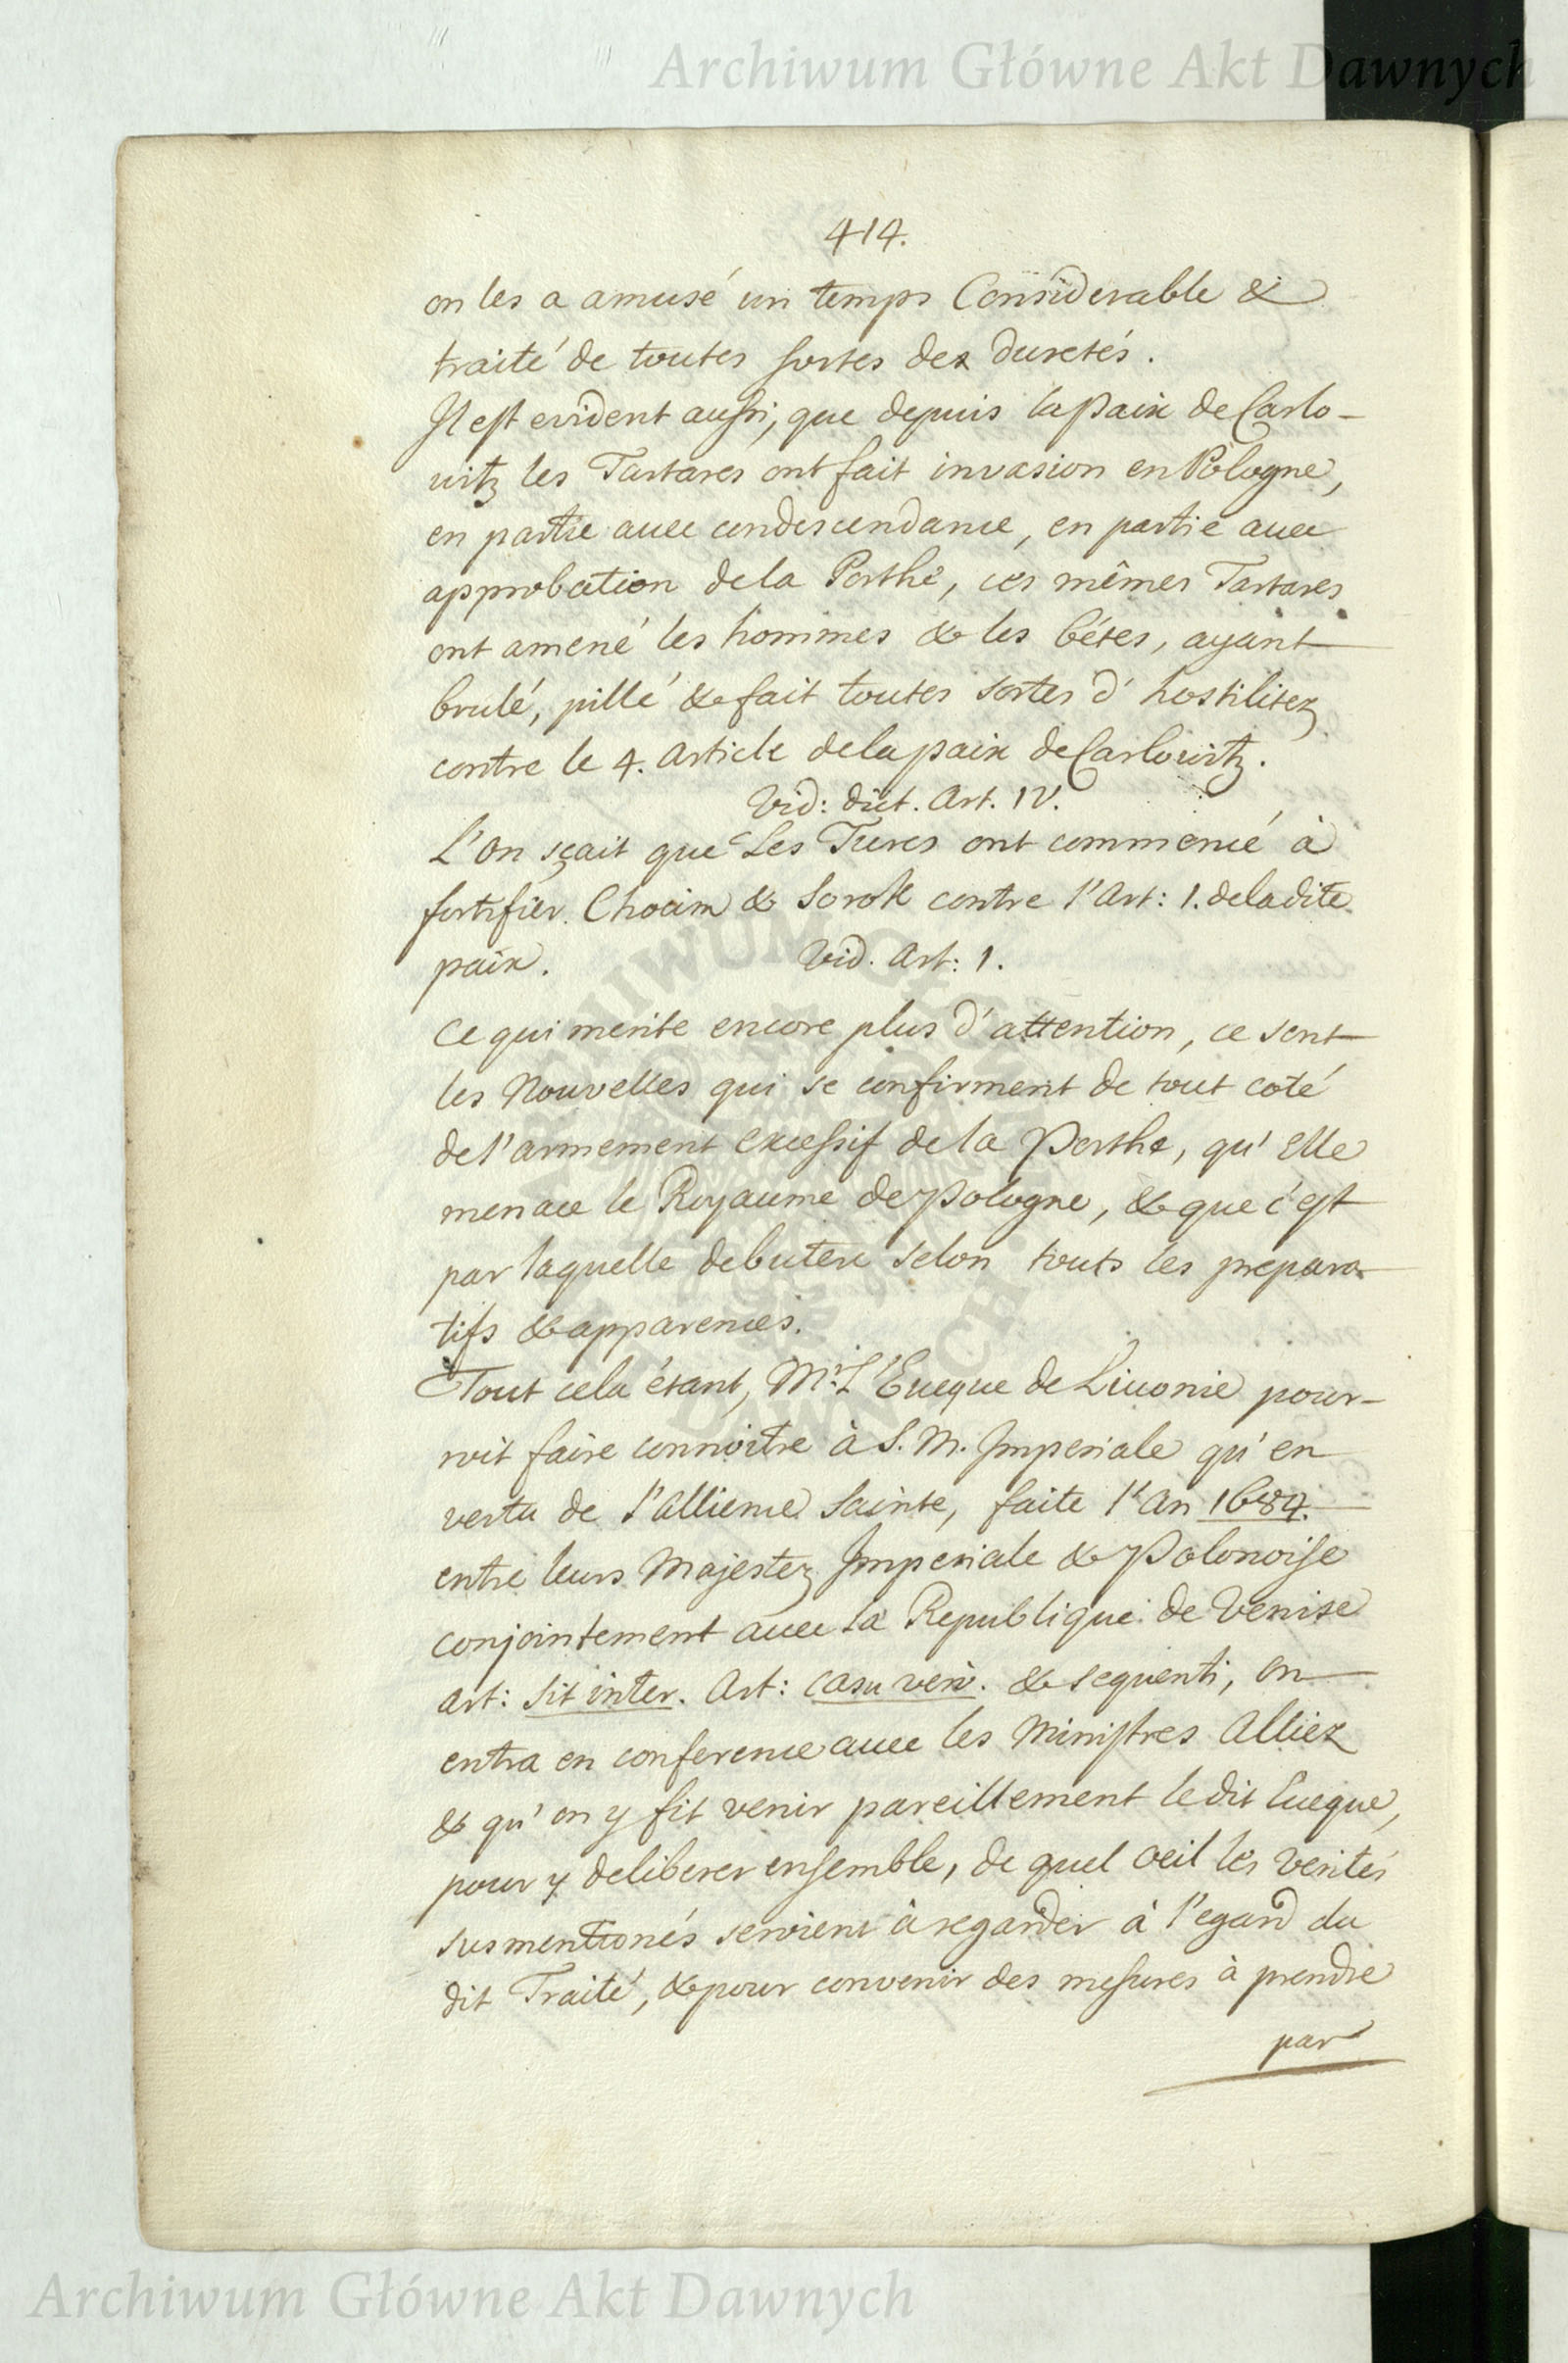 Archiwum Główne Akt Dawnych
414.
on les a amusé un temps Considerable &
traité de toutes sortes des duretés.
Il est evident aussi, que depuis la paix de Carlo-
witz les Tartares ont fait invasion en Pologne,
en partie avec condescendance, en partie avec
approbation de la Porthe, ces mêmes Tartares
ont amené les hommes & les bétes, ayant
brulé, pillé & fait toutes sortes d'hostilitez
contre le 4. Article de la paix de Carlowitz.
Vid: dict. Art. IV.
L'on sçait que Les Turcs ont commencé à
fortifier Chocim & Sorok contre l'Art: 1. de la dite
paix. Vid. Art: 1.
Ce qui merite encore plus d'attention, ce sont
les Nouvelles qui se confirment de tout coté
de l'armement excessif de la Porthe, qu'Elle
menace le Royaume de Pologne, & que c'est
par laquelle debutera selon touts les prepara-
tifs & apparences.
Tout cela étant, Mr. L'Eueque de Liuonie pour-
roit faire connoitre à S. M. Imperiale qu'en
vertu de l'Allience Sainte, faite l'an 1684.
entre leurs Majestez Imperiale & Polonoise
conjointement auec la Republique de Venise
art: Sit inter. Art: casu vero. & sequenti, on
entra en conference auec les Ministres Alliez
& qu'on y fit venir pareillement le dit Eueque,
pour y deliberer ensemble, de quel oeil les verités
susmentionés seroient à regarder à l'egard du
dit Traité, & pour convenir des mesures à prendre
par
Archiwum Główne Akt Dawnych